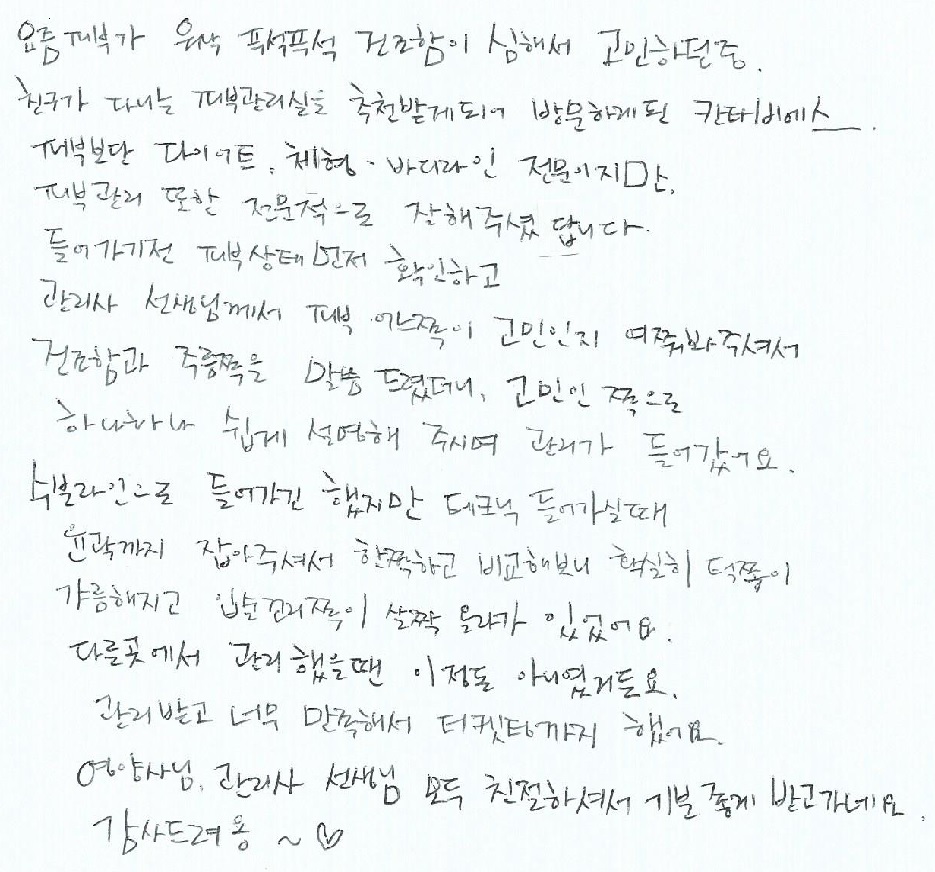 요즘 피부가 유난 푸석푸석 건조함이 심해서 고민하던중.
친구가 다니는 피부관리실을 추천받게되어 방문하게된 칸타비에스.
피부보단 다이어트, 체형·바디라인 전문이지만,
피부관리 또한 전문적으로 잘해주셨답니다.
들어가기전 피부상태먼저 확인하고
관리사 선생님께서 피부 어느쪽이 고민인지 여쭤봐주셔서
건조함과 주름쪽을 말씀 드렸더니, 고민인 쪽으로
하나하나 쉽게 설명해 주시며 관리가 들어갔어요.
수분라인으로 들어가긴 했지만 테크닉 들어가실때
윤곽까지 잡아주셔서 한쪽하고 비교해보니 확실히 턱쪽이
갸름해지고 입술꼬리쪽이 살짝 올라가 있었어요.
다른곳에서 관리했을땐 이정도 아니였거든요.
관리받고 너무 만족해서 티켓팅까지 했어요.
영양사님, 관리사 선생님 모두 친절하셔서 기분 좋게 받고가네요.
감사드려용 ~♡